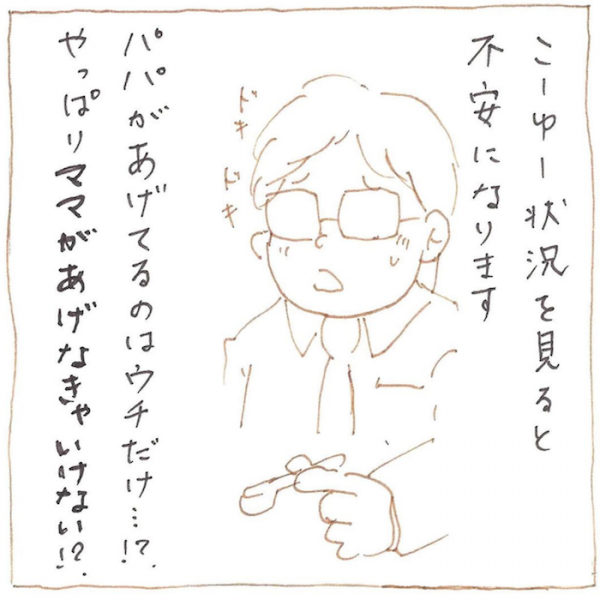 こーゆー状況を見ると
不安になります
ドキ
ドキ
パパがあげてるのはウチだけ…!?
やっぱりママがあげなきゃいけない!?